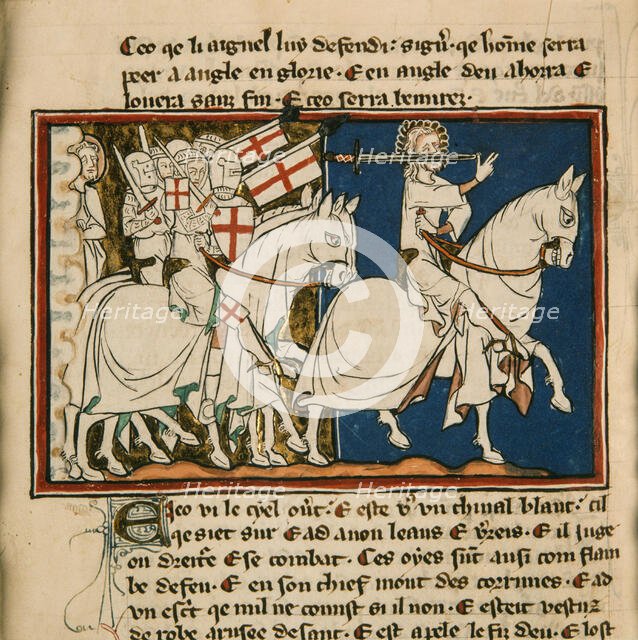 Ceo qe li aignel luy defendi: signe qe home serra
peer a angle en glorie· E en angle deu ahorra E
louera sanz fin· E ceo serra
Heritage Heritage
Heritage Heritage
Heritage Heritage
E Jeo vi le cyel E este vn chiual blanc: cil
qe siet sur E ad a non leaus E E il iuge
en E se combat· Ces oyes sunt ausi com flam
be de feu· E en son chief mout des E ad
vn escrit qe nul ne conust si il non· E esteit vestuz
de robe arusee de sanc· E est apele le fiz deu· E lost